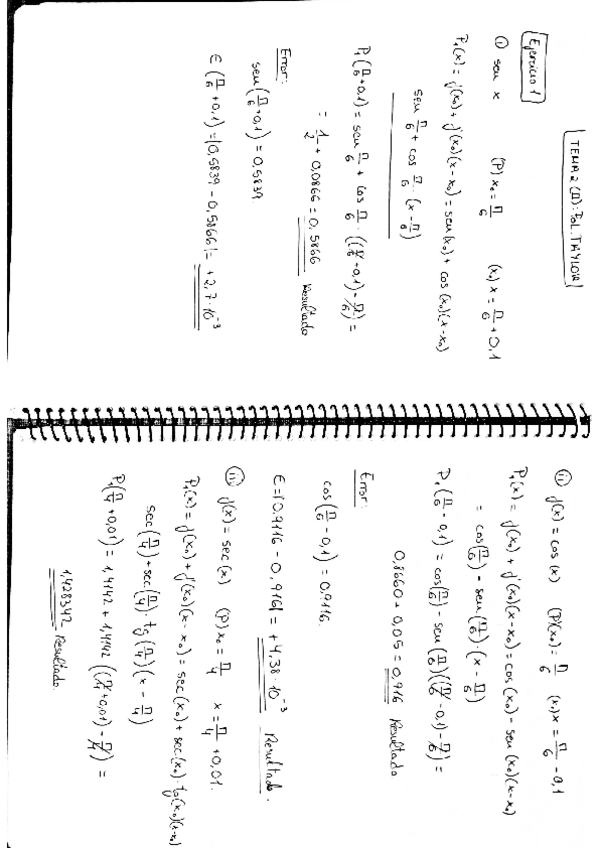 TEMA 2 (II): Pol. TAYLOR
Ejercicio 1
① sen x (P) x₀ = π/6 (x.) x = π/6 + 0,1
P₁(x) = f(x₀) + f'(x₀)(x-x₀) = sen(x₀) + cos(x₀)(x-x₀)
sen π/6 + cos π/6 · (x - π/6)
P₁(π/6 + 0,1) = sen π/6 + cos π/6 · ((π/6 + 0,1) - π/6) =
= 1/2 + 0,0866 = 0,5866 Resultado
Error:
sen(π/6 + 0,1) = 0,5839
E(π/6 + 0,1) = |0,5839 - 0,5866| = +2,7·10⁻³
ii) f(x) = cos(x) (P)(x₀) = π/6 (x.) x = π/6 - 0,1
P₁(x) = f(x₀) + f'(x₀)(x-x₀) = cos(x₀) - sen(x₀)(x-x₀)
= cos(π/6) - sen(π/6)·(x - π/6)
P₁(π/6 - 0,1) = cos(π/6) - sen(π/6)((π/6 - 0,1) - π/6) =
0,8660 + 0,05 = 0,916 Resultado
Error:
cos(π/6 - 0,1) = 0,9116.
E = |0,9116 - 0,916| = +4,38·10⁻³ Resultado.
iii) f(x) = sec(x) (P) x₀ = π/4 x = π/4 + 0,01.
P₁(x) = f(x₀) + f'(x₀)(x-x₀) = sec(x₀) + sec(x₀)·tg(x₀)(x-x₀)
sec(π/4) + sec(π/4)·tg(π/4)(x - π/4)
P₁(π/4 + 0,01) = 1,4142 + 1,4142((π/4 + 0,01) - π/4) =
1,428342 Resultado.